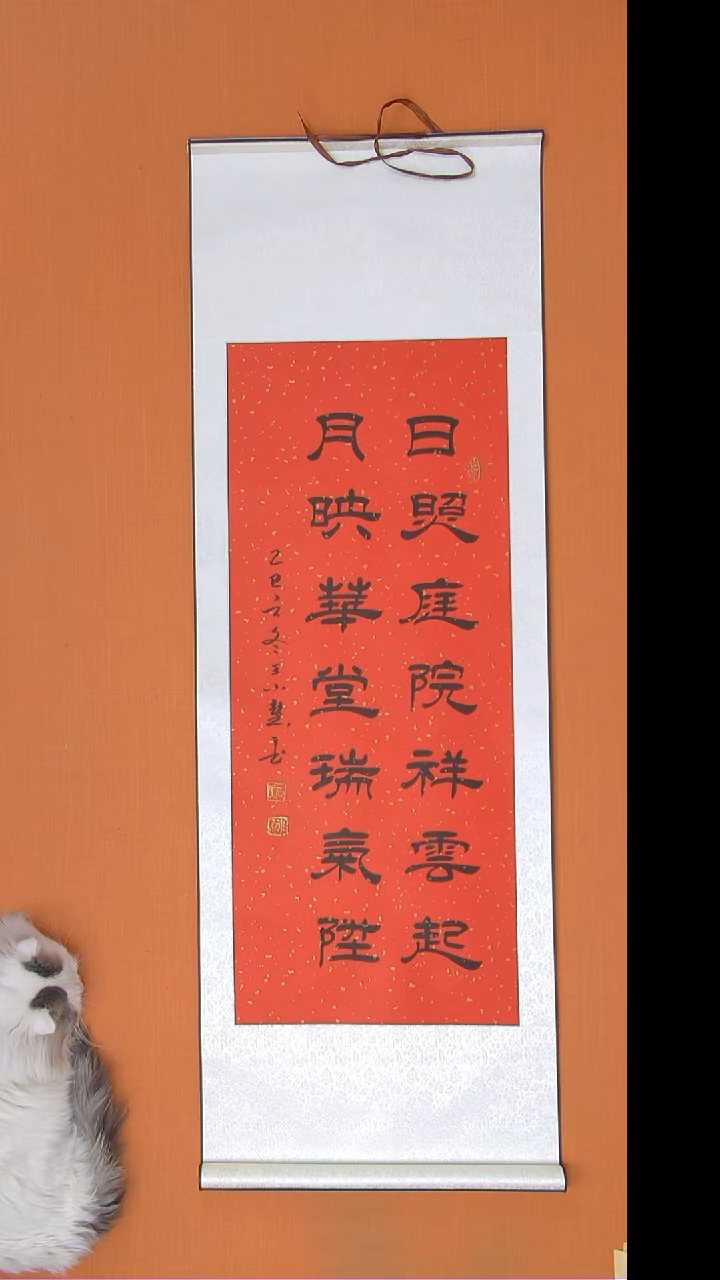 日照庭院祥雲起
月映華堂瑞氣陞
乙巳之冬至小慧書